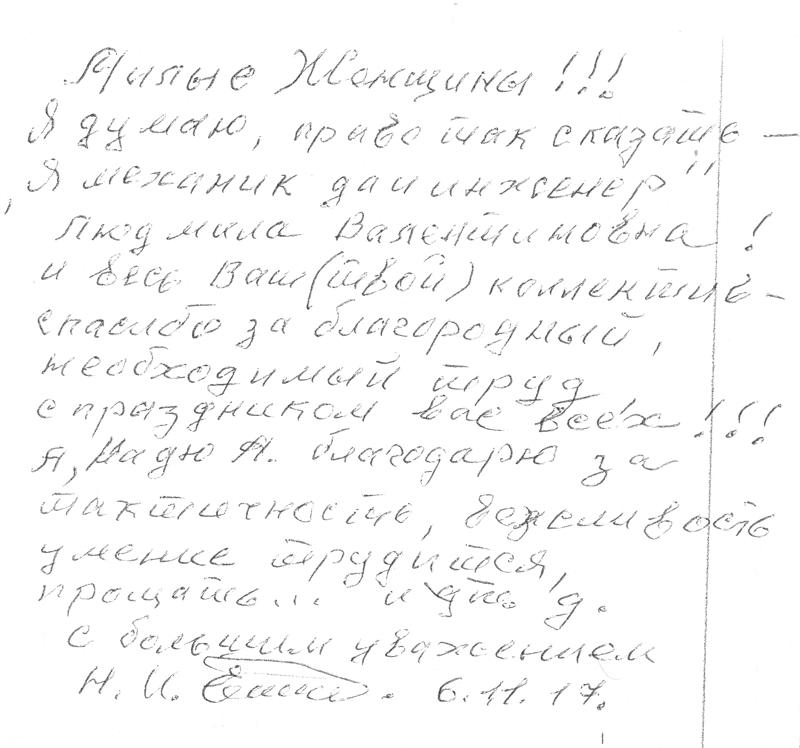 Милые Женщины!!!
Я думаю, право так сказать —
"Я механик да и инженер"
Людмила Валентиновна!
и весь Ваш (твой) коллектив —
спасибо за благородный,
необходимый труд
с праздником вас всех!!!
я, Надю А. благодарю за
тактичность, вежливость
умение трудится,
прощать... и д.
с большим уважением
Н. И. 6.11.17.